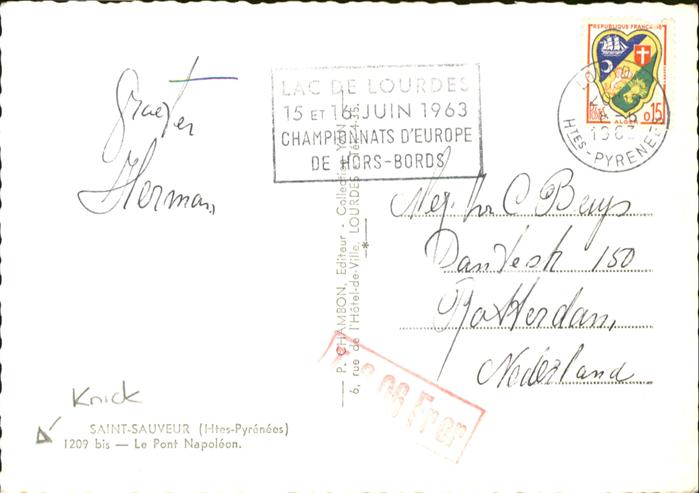 Groeten
Herman
LAC DE LOURDES
15 ET 16 JUIN 1963
CHAMPIONNATS D'EUROPE
DE HORS-BORDS
REPUBLIQUE FRANÇAISE
POSTES
ALGER
0,15
1963
HTES-PYRENEES
P. CHAMBON, Editeur - Collection
6, rue de l'Hôtel-de-Ville, LOURDES
C Buys
150
Rotterdam,
Nederland
Knick
SAINT-SAUVEUR (Htes-Pyrénées)
1209 bis — Le Pont Napoléon.